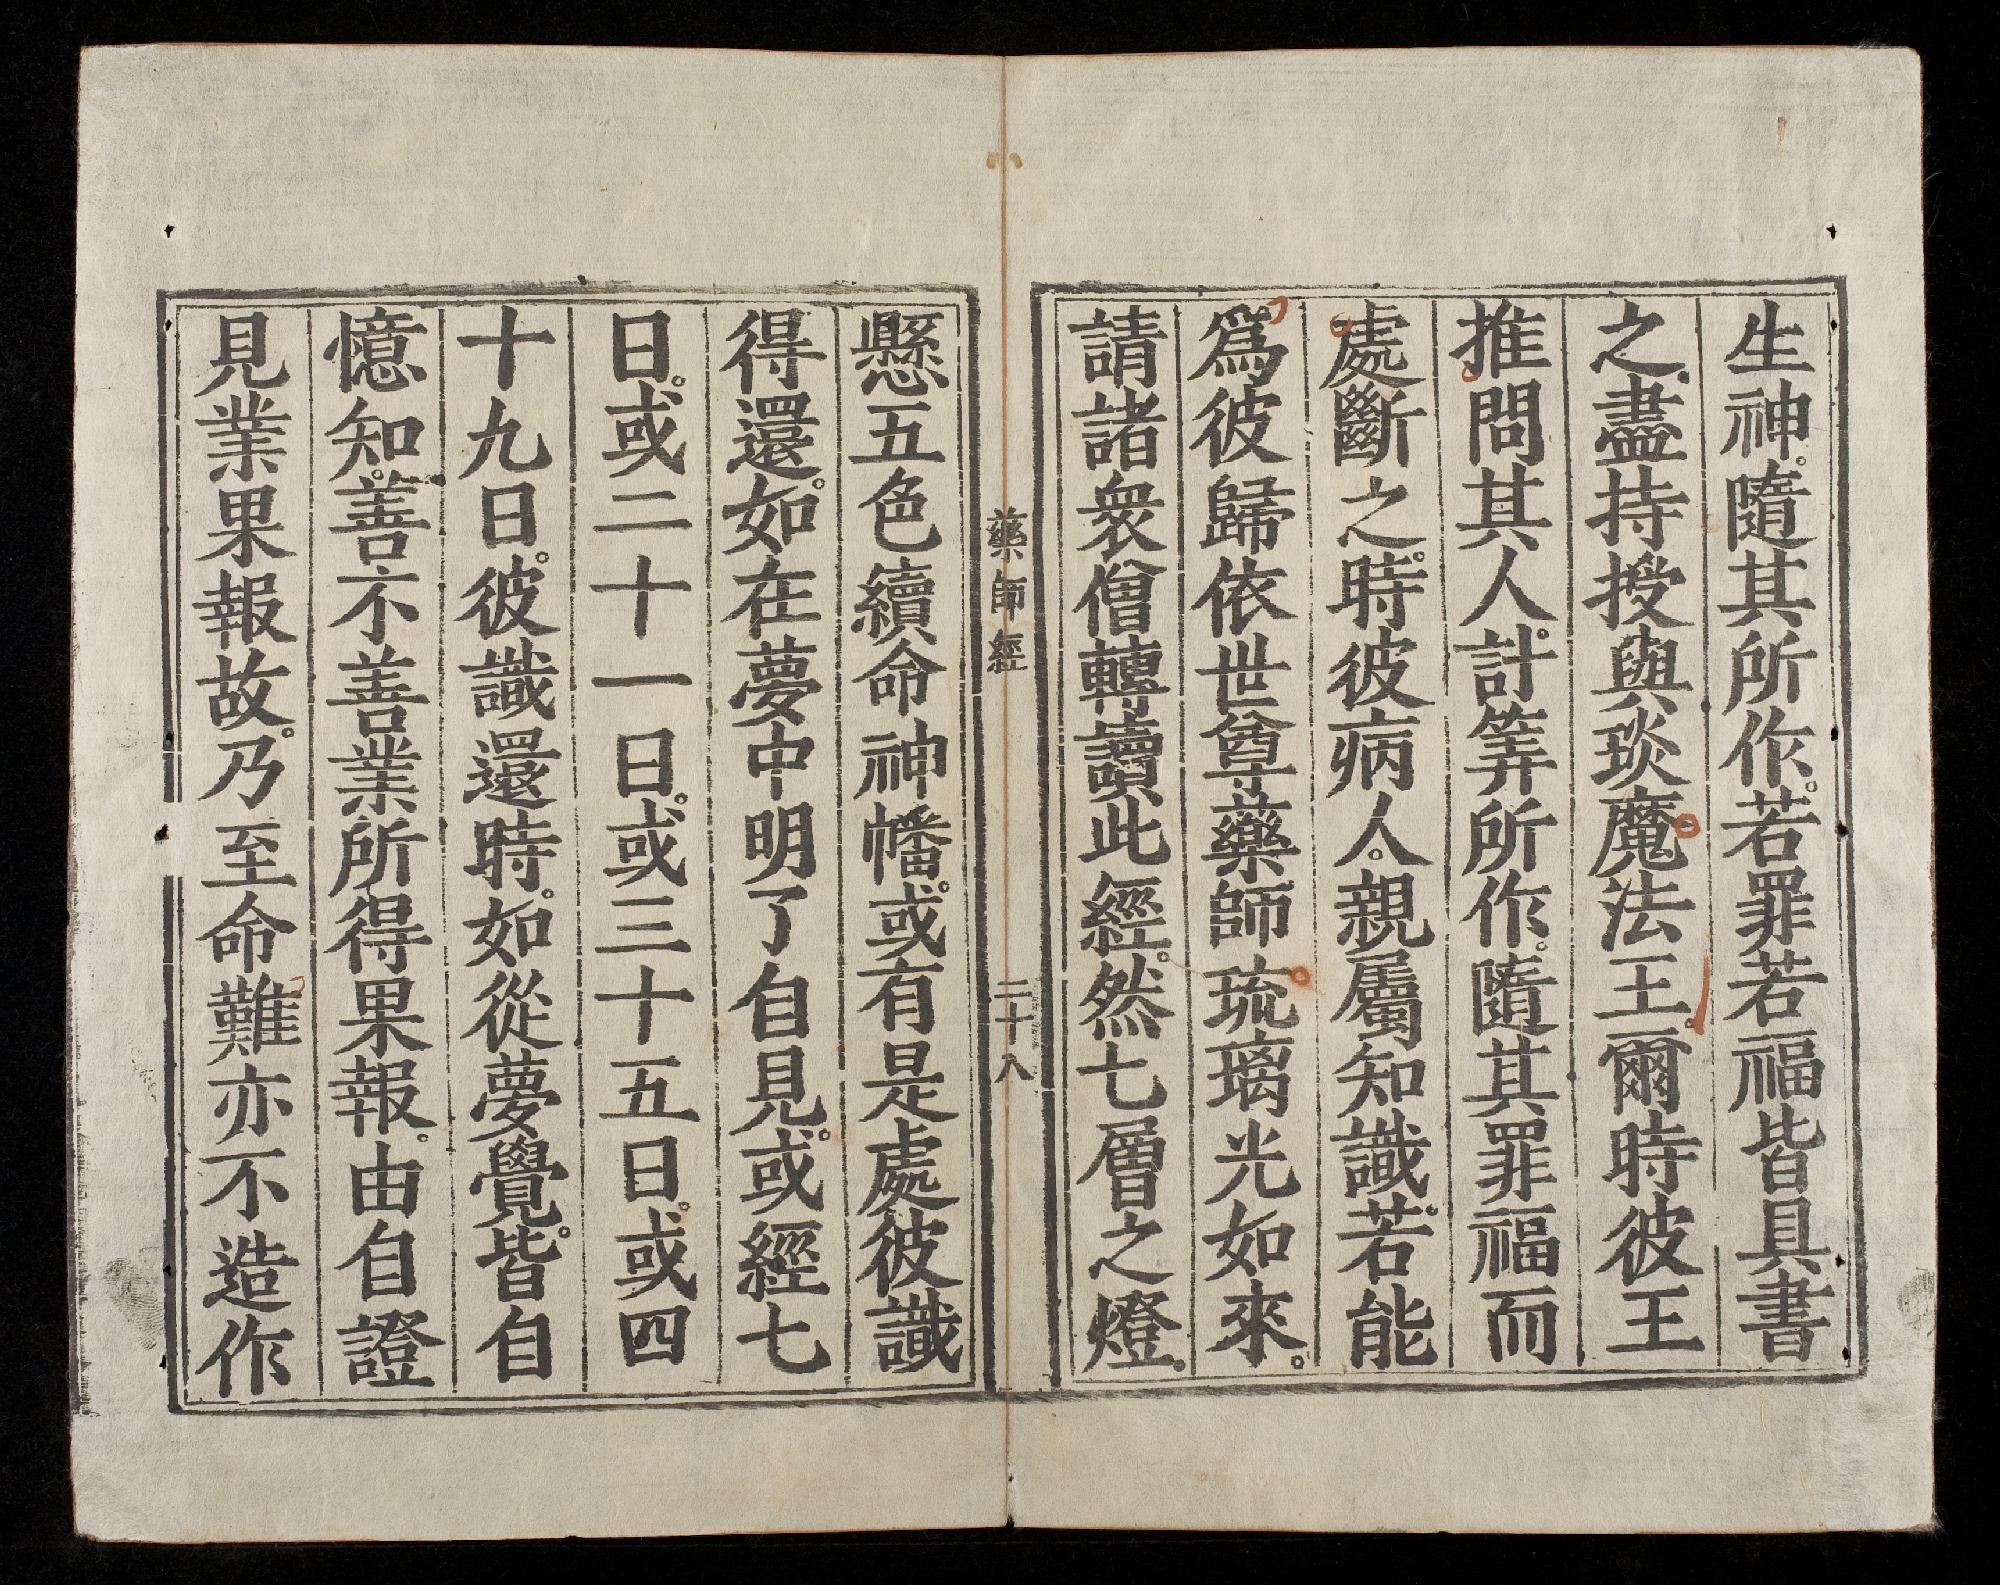 生神。隨其所作。若罪若福皆具書
之。盡持授與琰魔法王。爾時彼王
推問其人。計筭所作。隨其罪福而
處斷之。時彼病人。親屬知識。若能
爲彼歸依世尊藥師琉璃光如來。
請諸衆僧轉讀此經。然七層之燈。
藥師經 二十八
懸五色續命神幡。或有是處彼識
得還。如在夢中明了自見。或經七
日。或二十一日。或三十五日。或四
十九日。彼識還時。如從夢覺。皆自
憶知。善不善業所得果報。由自證
見業果報故。乃至命難亦不造作